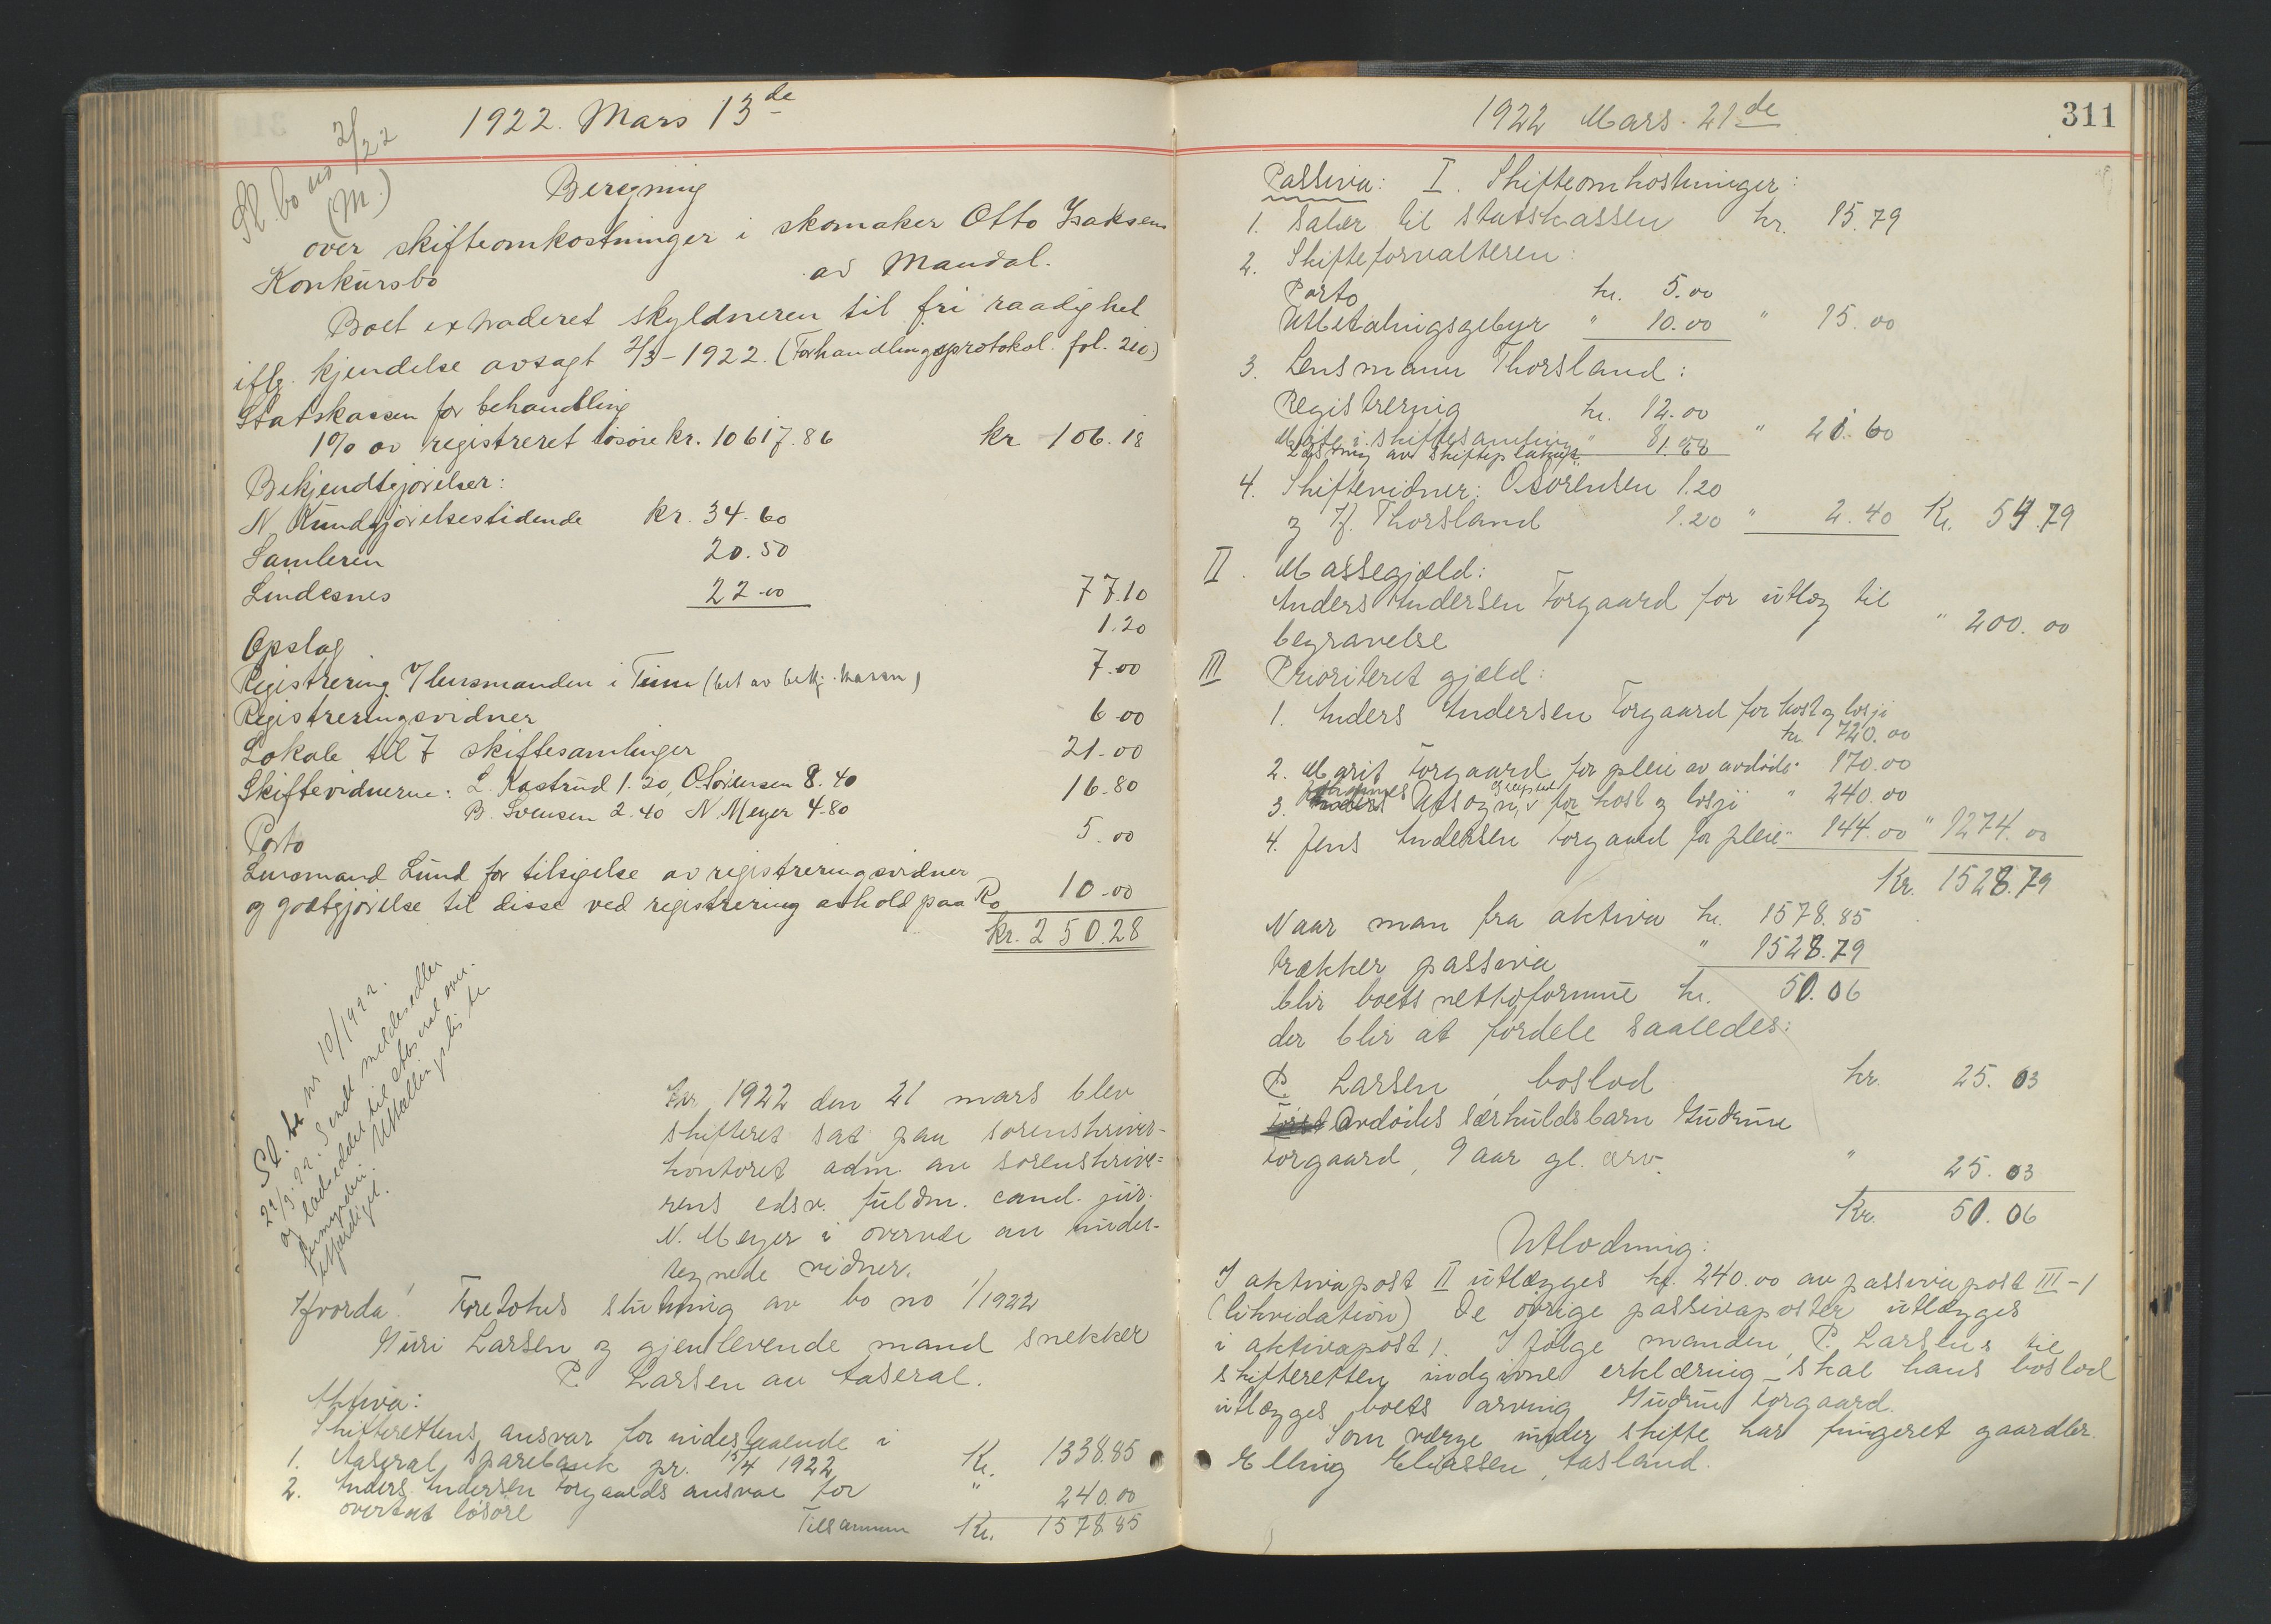 1922. Mars 13de
Sk. bo no 2/22
(M.)
Beregning
over skifteomkostninger i skomaker Otto Isaksens
Konkursbo av Mandal.
Boet extraderet skyldneren til fri raadighet
iflg. kjendelse avsagt 2/3-1922. (Forhandlingsprotokol. fol. 210)
Statskassen for behandling
1% av registreret løsøre kr. 10617.86 kr 106.18
Bekjendtgjørelser:
N. Kundgjørelsestidende kr. 34.60
Samleren 20.50
Lindesnes 22.00 77.10
Opslag 1.20
Registrering v/lensmanden i Tinn (bet av bekj. kassen) 7.00
Registreringsvidner 6.00
Lokale til 7 skiftesamlinger 21.00
Skiftevidnerne: L. Kastrud 1.20, O. Sørensen 8.40 16.80
B. Svensen 2.40 N. Meyer 4.80
Porto 5.00
Lensmand Lund for tilsigelse av registreringsvidner
og godtgjørelse til disse ved registrering avhold paa Ro 10.00
kr. 250.28
Sk. bo nr 10/1922.
22/3.22. Sendt meldesedler
og lodseddel til Aaseral over-
formynderi. Utfallingsliste
utfærdiget.
Aar 1922 den 21 mars blev
skifteret sat paa sorenskriver-
kontoret adm. av sorenskrive=
rens edsv. fuldm. cand. jur.
N. Meyer i overvær av under-
tegnede vidner.
Hvorda! Foretokes slutning av bo no 1/1922
Guri Larsen og gjenlevende mand snekker
P. Larsen av Aaseral.
Aktiva:
Skifterettens ansvar for indestaaende i
1. Aaseral Sparebank pr. 15/4 1922 Kr. 1338.85
2. Anders Andersen Torgaards ansvar for " 240.00
overtat løsøre
Tilsammen Kr. 1578.85
1922 Mars. 21de
311
Passiva: I. Skifteomkostninger:
1. Salær til statskassen kr. 15.79
2. Skifteforvalteren:
Porto kr. 5.00
Utbetalingsgebyr " 10.00 " 15.00
3. Lensmann Thorsland:
Registrering kr. 12.00
Møte i skiftesamling " 8.00 " 21.60
Læsning av skifteplakat
4. Skiftevidner: O. Sørensen 1.20
og H. Thorsland 1.20 " 2.40 Kr. 54.79
II. Massegjæld:
Anders Andersen Torgaard for utlæg til
begravelse " 200.00
III Prioriteret gjæld:
1. Anders Andersen Torgaard for kost og losji
kr. 720.00
2. Marit Torgaard for pleie av avdøde " 170.00
3. Johannes Aasogn, for kost og losji " 240.00
4. Jens Andersen Torgaard for pleie " 144.00 " 1274.00
Kr. 1528.79
Naar man fra aktiva kr. 1578.85
trækker passiva " 1528.79
blir boets nettoformue kr. 50.06
der blir at fordele saaledes:
P. Larsen, boslod kr. 25.03
Avdødes særkuldsbarn Gudrun
Torgaard, 9 aar gl. arv. " 25.03
Kr. 50.06
Utlodning:
I aktivapost II utlægges kr. 240.00 av passivapost III-1
(likvidation) De øvrige passivaposter utlægges
i aktivapost 1. I følge manden, P. Larsens til
skifteretten indgivne erklæring skal hans boslod
utlægges boets arving Gudrun Torgaard.
Som værge under skifte har fungeret gaardbr.
Elling Eliassen, Aasland.